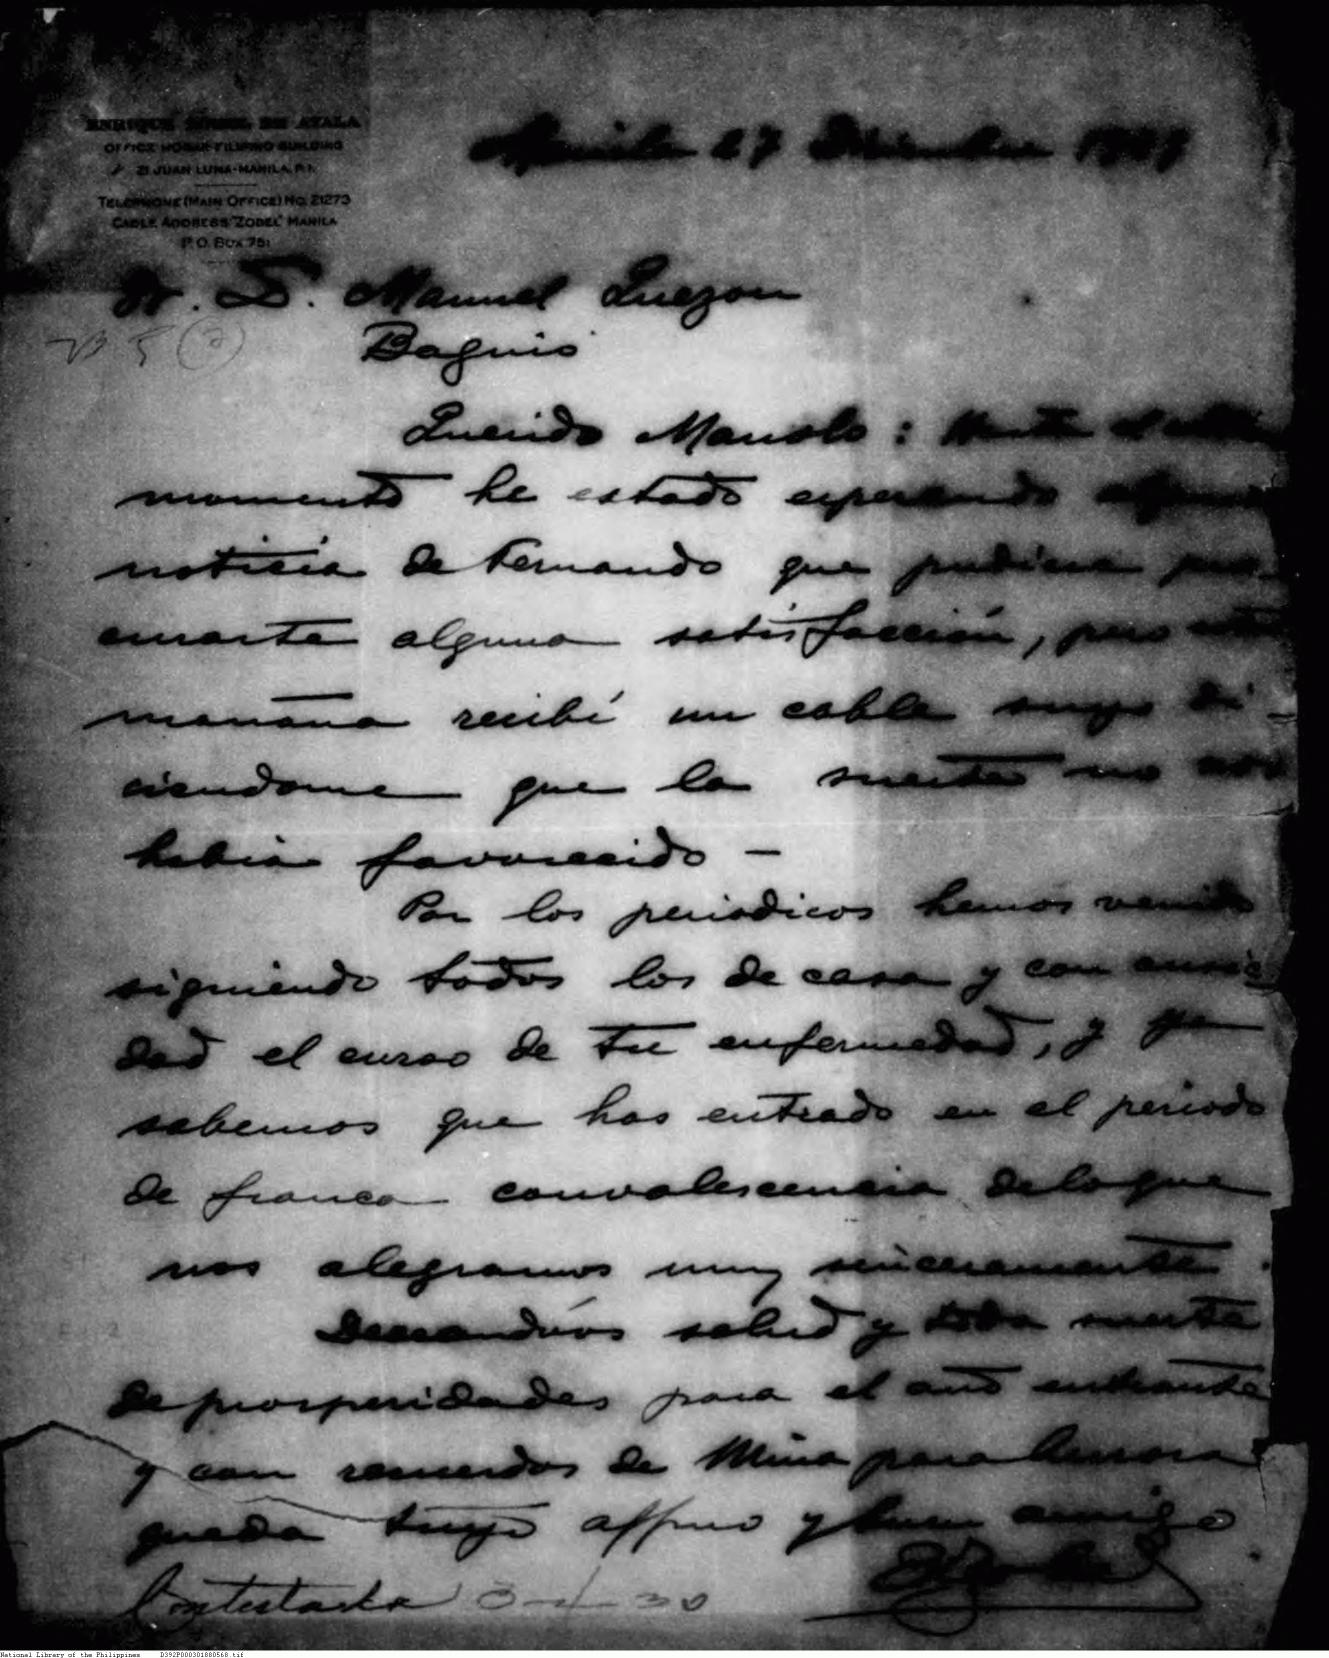 ENRIQUE ZOBEL DE AYALA
OFFICE HOGAR FILIPINO BUILDING
21 JUAN LUNA-MANILA, P.I.
TELEPHONE (MAIN OFFICE) No. 21273
CABLE ADDRESS "ZOBEL" MANILA
P.O. BOX 751
Manila 27 Diciembre 1929
Sr. D. Manuel Quezon
Baguio
Querido Manolo: Hasta el ultimo
momento he estado esperando alguna
noticia de Fernando que pudiera pro-
curarte alguna satisfacción, pero esta
mañana recibí un cable suyo di-
ciendome que la suerte no nos
habia favorecido —
Por los periodicos hemos venido
siguiendo todos los de casa y con ansie
dad el curso de tu enfermedad, y ya
sabemos que has entrado en el periodo
de franca convalescencia de lo que
nos alegramos muy sinceramente.
Deseandoos salud y toda suerte
de prosperidades para el año entrante
y con recuerdos de Mina para Aurora
queda tuyo affmo y buen amigo
EZobel
Contestada 3-1-30
National Library of the Philippines D392P000301880568.tif